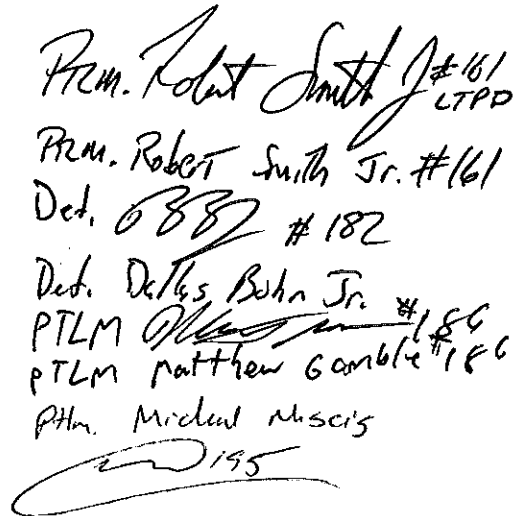 Ptlm. Robert Smith Jr #161
LTPD
Ptlm. Robert Smith Jr. #161
Det. #182
Det. Dallas Bohn Jr.
PTLM #186
PTLM Matthew Gamble #186
Ptlm. Micheal
195